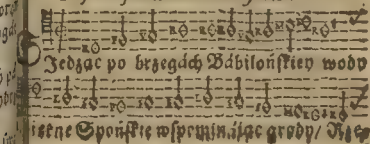 Jedząc po brzegách Bábilońskiey wody
iękne Syońskie wspominaiąc grody/